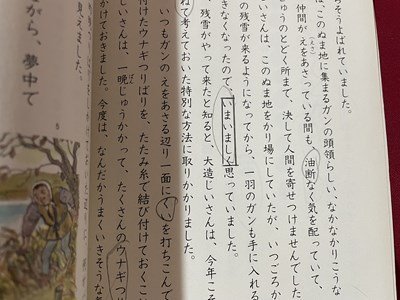 ちそうよばれていました。
は、このぬま地に集まるガンの頭領らしい、なかなかりこうな
仲間がえをあさっている間も、油断なく気を配っていて、
じゅうのとどく所まで、決して人間を寄せつけませんでした。
いさんは、このぬま地をかり場にしていたが、いつごろか
の残雪が来るようになってから、一羽のガンも手に入れる
きなくなったので、いまいましく思っていました。
残雪がやって来たと知ると、大造じいさんは、今年こそ
ねて考えておいた特別な方法に取りかかりました。
いつもガンのえをあさる辺り一面にくいを打ちこんで
付けたウナギつりばりを、たたみ糸で結び付けておくこ
じいさんは、一晩じゅうかかって、たくさんのウナギつ
かけておきました。今度は、なんだかうまくいきそうな気
見えました。
がら、夢中で
6